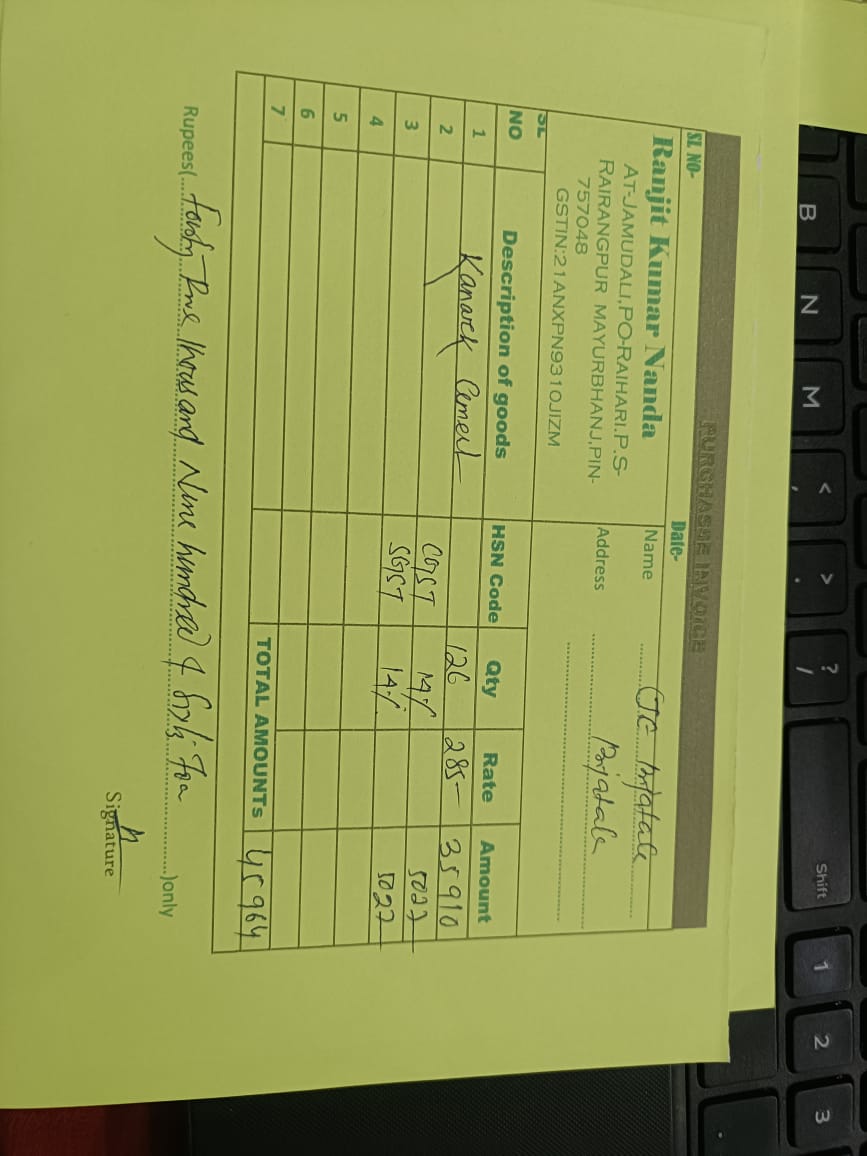 PURCHASSE INVOICE
SL NO-
Date-
Ranjit Kumar Nanda
AT-JAMUDALI,PO-RAIHARI.P.S-
RAIRANGPUR MAYURBHANJ,PIN-
757048
GSTIN:21ANXPN9310JIZM
Name
Address
SL NO Description of goods HSN Code Qty Rate Amount
1 Kanark Cement 126 285- 35910
2 CGST 14% 5027
3 SGST 14% 5027
4
5
6
7
TOTAL AMOUNTs 45964
Rupees( Thousand Nine hundred & )only
Signature
B N M < , > . ? / Shift 1 2 3 .